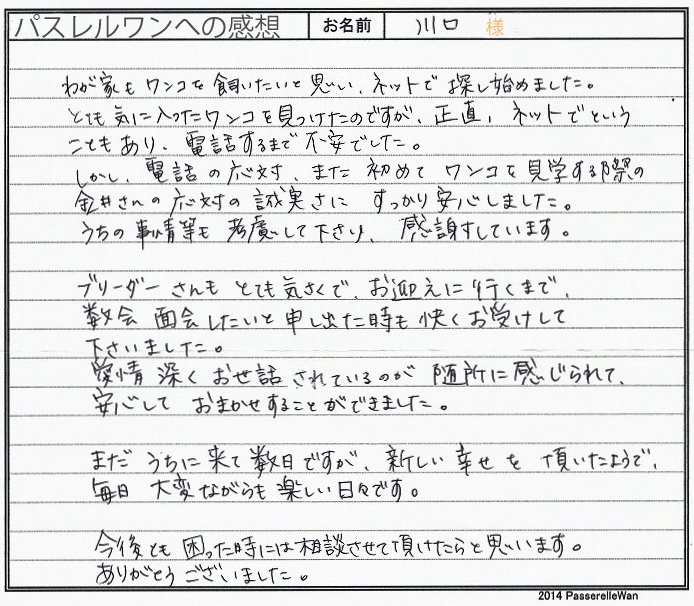 パスレルワンへの感想 お名前 川口 様
わが家もワンコを飼いたいと思い、ネットで探し始めました。
とても気に入ったワンコを見つけたのですが、正直、ネットでという
こともあり、電話するまで不安でした。
しかし、電話の応対、また初めてワンコを見学する際の
金井さんの応対の誠実さにすっかり安心しました。
うちの事情等も考慮して下さり、感謝しています。
ブリーダーさんもとても気さくで、お迎えに行くまで、
数会面会したいと申し出た時も快くお受けして
下さいました。
愛情深くお世話されているのが随所に感じられて、
安心しておまかせすることができました。
まだうちに来て数日ですが、新しい幸せを頂いたようで、
毎日大変ながらも楽しい日々です。
今後とも困った時には相談させて頂けたらと思います。
ありがとうございました。
2014 PasserelleWan